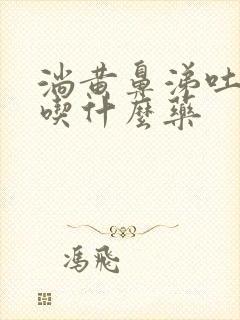 淌黄鼻涕吐
喫什麼藥
馮飛